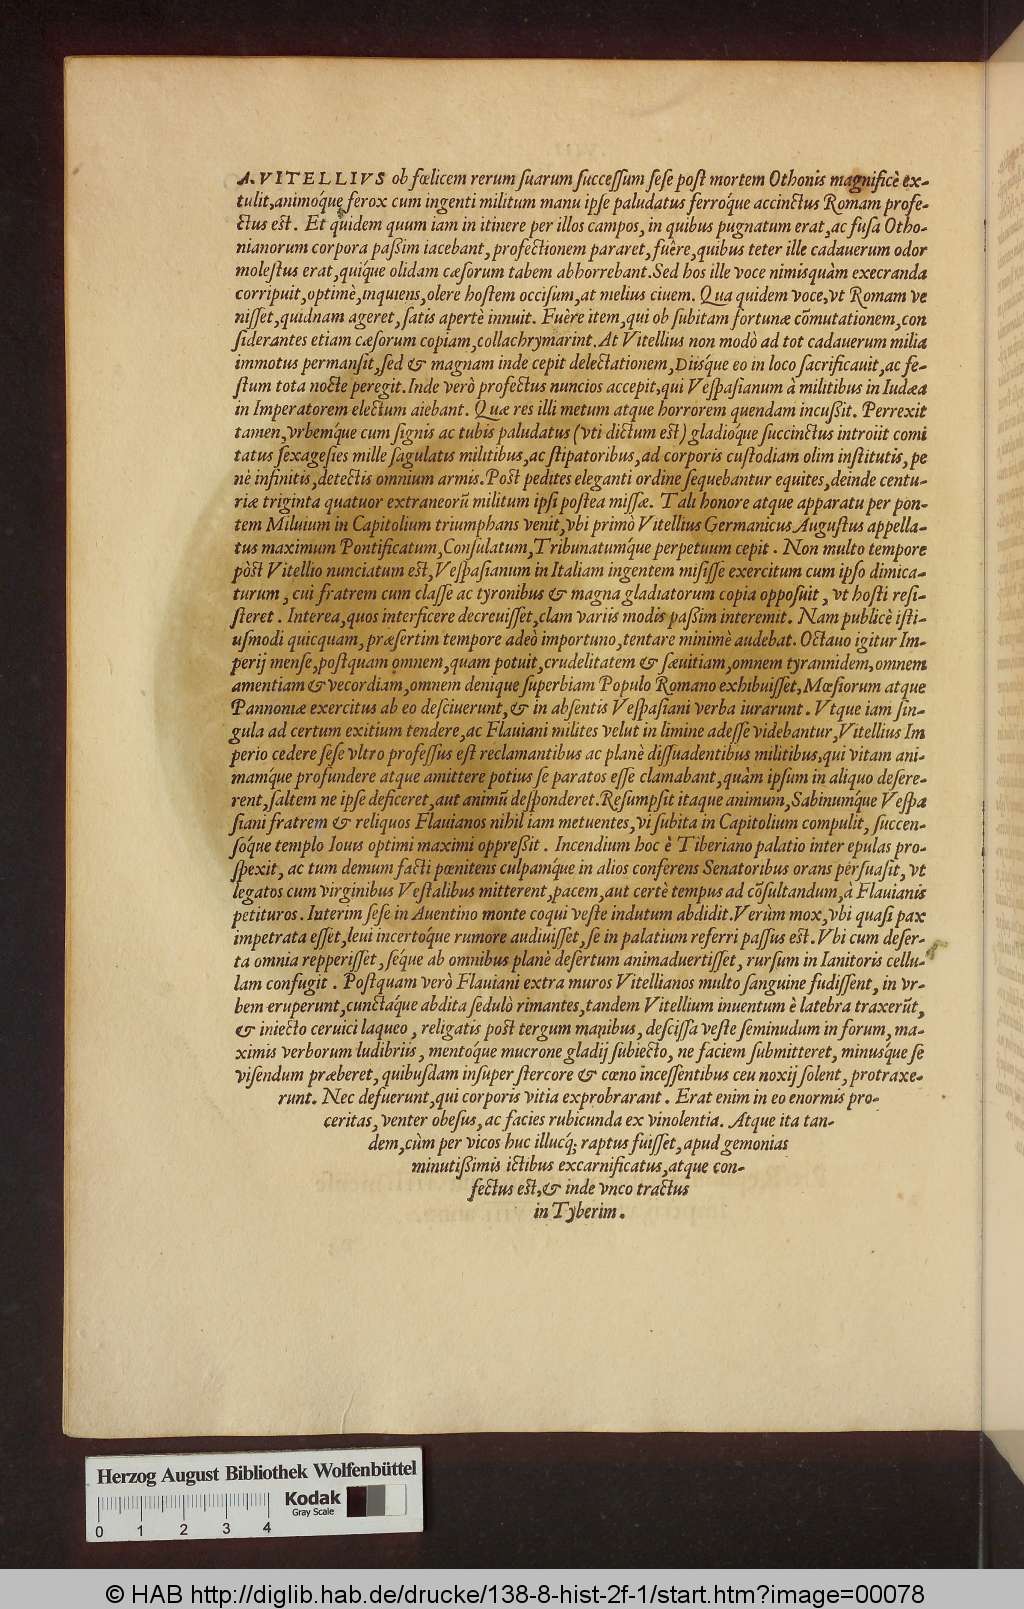 A. VITELLIVS ob fœlicem rerum ſuarum ſucceſſum ſeſe poſt mortem Othonis magnificè ex-
tulit, animóque ferox cum ingenti militum manu ipſe paludatus ferróque accinctus Romam profe-
ctus eſt. Et quidem quum iam in itinere per illos campos, in quibus pugnatum erat, ac fuſa Otho-
nianorum corpora paßim iacebant, profectionem pararet, fuêre, quibus teter ille cadauerum odor
moleſtus erat, quíque olidam cæſorum tabem abhorrebant. Sed hos ille voce nimisquàm execranda
corripuit, optimè, inquiens, olere hoſtem occiſum, at melius ciuem. Qua quidem voce, vt Romam ve
niſſet, quidnam ageret, ſatis apertè innuit. Fuère item, qui ob ſubitam fortunæ cõmutationem, con
ſiderantes etiam cæſorum copiam, collachrymarint. At Vitellius non modò ad tot cadauerum milia
immotus permanſit, ſed & magnam inde cepit delectationem, Diisque eo in loco ſacrificauit, ac fe-
ſtum tota nocte peregit. Inde verò profectus nuncios accepit, qui Veſpaſianum à militibus in Iudæa
in Imperatorem electum aiebant. Quæ res illi metum atque horrorem quendam incußit. Perrexit
tamen, vrbemque cum ſignis ac tubis paludatus (vti dictum eſt) gladióque ſuccinctus introiit comi
tatus ſexagesies mille ſagulatis militibus, ac ſtipatoribus, ad corporis cuſtodiam olim inſtitutis, pe
nè infinitis, detectis omnium armis. Poſt pedites eleganti ordine ſequebantur equites, deinde centu-
riæ triginta quatuor extraneorũ militum ipſi poſtea miſſæ. Tali honore atque apparatu per pon-
tem Miluium in Capitolium triumphans venit, vbi primò Vitellius Germanicus Auguſtus appella-
tus maximum Pontificatum, Conſulatum, Tribunatumque perpetuum cepit. Non multo tempore
pòſt Vitellio nunciatum eſt, Veſpaſianum in Italiam ingentem miſiſſe exercitum cum ipſo dimica-
turum, cui fratrem cum claſſe ac tyronibus & magna gladiatorum copia oppoſuit, vt hoſti reſi-
ſteret. Interea, quos interficere decreuiſſet, clam variis modis paßim interemit. Nam publicè iſti-
uſmodi quicquam, præſertim tempore adeò importuno, tentare minimè audebat. Octauo igitur Im-
perij menſe, poſtquam omnem, quam potuit, crudelitatem & ſæuitiam, omnem tyrannidem, omnem
amentiam & vecordiam, omnem denique ſuperbiam Populo Romano exhibuiſſet, Mœſiorum atque
Pannoniæ exercitus ab eo deſciuerunt, & in abſentis Veſpaſiani verba iurarunt. Vtque iam ſin-
gula ad certum exitium tendere, ac Flauiani milites velut in limine adeſſe videbantur, Vitellius Im
perio cedere ſeſe vltro profeſſus eſt reclamantibus ac planè diſſuadentibus militibus, qui vitam ani-
mamque profundere atque amittere potius ſe paratos eſſe clamabant, quàm ipſum in aliquo deſere-
rent, ſaltem ne ipſe deficeret, aut animũ deſponderet. Reſumpſit itaque animum, Sabinumque Veſpa
ſiani fratrem & reliquos Flauianos nihil iam metuentes, vi ſubita in Capitolium compulit, ſuccen-
ſóque templo Iouis optimi maximi oppreßit. Incendium hoc è Tiberiano palatio inter epulas pro-
ſpexit, ac tum demum facti pœnitens culpamque in alios conferens Senatoribus orans perſuaſit, vt
legatos cum virginibus Veſtalibus mitterent, pacem, aut certè tempus ad cõſultandum, à Flauianis
petituros. Interim ſeſe in Auentino monte coqui veſte indutum abdidit. Verùm mox, vbi quaſi pax
impetrata eſſet, leui incertóque rumore audiuiſſet, ſe in palatium referri paſſus eſt. Vbi cum deſer-
ta omnia repperiſſet, ſéque ab omnibus planè deſertum animaduertiſſet, rurſum in Ianitoris cellu-
lam confugit. Poſtquam verò Flauiani extra muros Vitellianos multo ſanguine fudiſſent, in vr-
bem eruperunt, cunctáque abdita ſedulò rimantes, tandem Vitellium inuentum è latebra traxerũt,
& iniecto ceruici laqueo, religatis poſt tergum manibus, deſciſſa veſte ſeminudum in forum, ma-
ximis verborum ludibriis, mentóque mucrone gladij ſubiecto, ne faciem ſubmitteret, minusque ſe
viſendum præberet, quibuſdam inſuper ſtercore & cœno inceſſentibus ceu noxij ſolent, protraxe-
runt. Nec defuerunt, qui corporis vitia exprobrarant. Erat enim in eo enormis pro-
ceritas, venter obeſus, ac facies rubicunda ex vinolentia. Atque ita tan-
dem, cùm per vicos huc illucq; raptus fuiſſet, apud gemonias
minutißimis ictibus excarnificatus, atque con-
fectus eſt, & inde vnco tractus
in Tyberim.
Herzog August Bibliothek Wolfenbüttel
Kodak
Gray Scale
0 1 2 3 4
© HAB http://diglib.hab.de/drucke/138-8-hist-2f-1/start.htm?image=00078